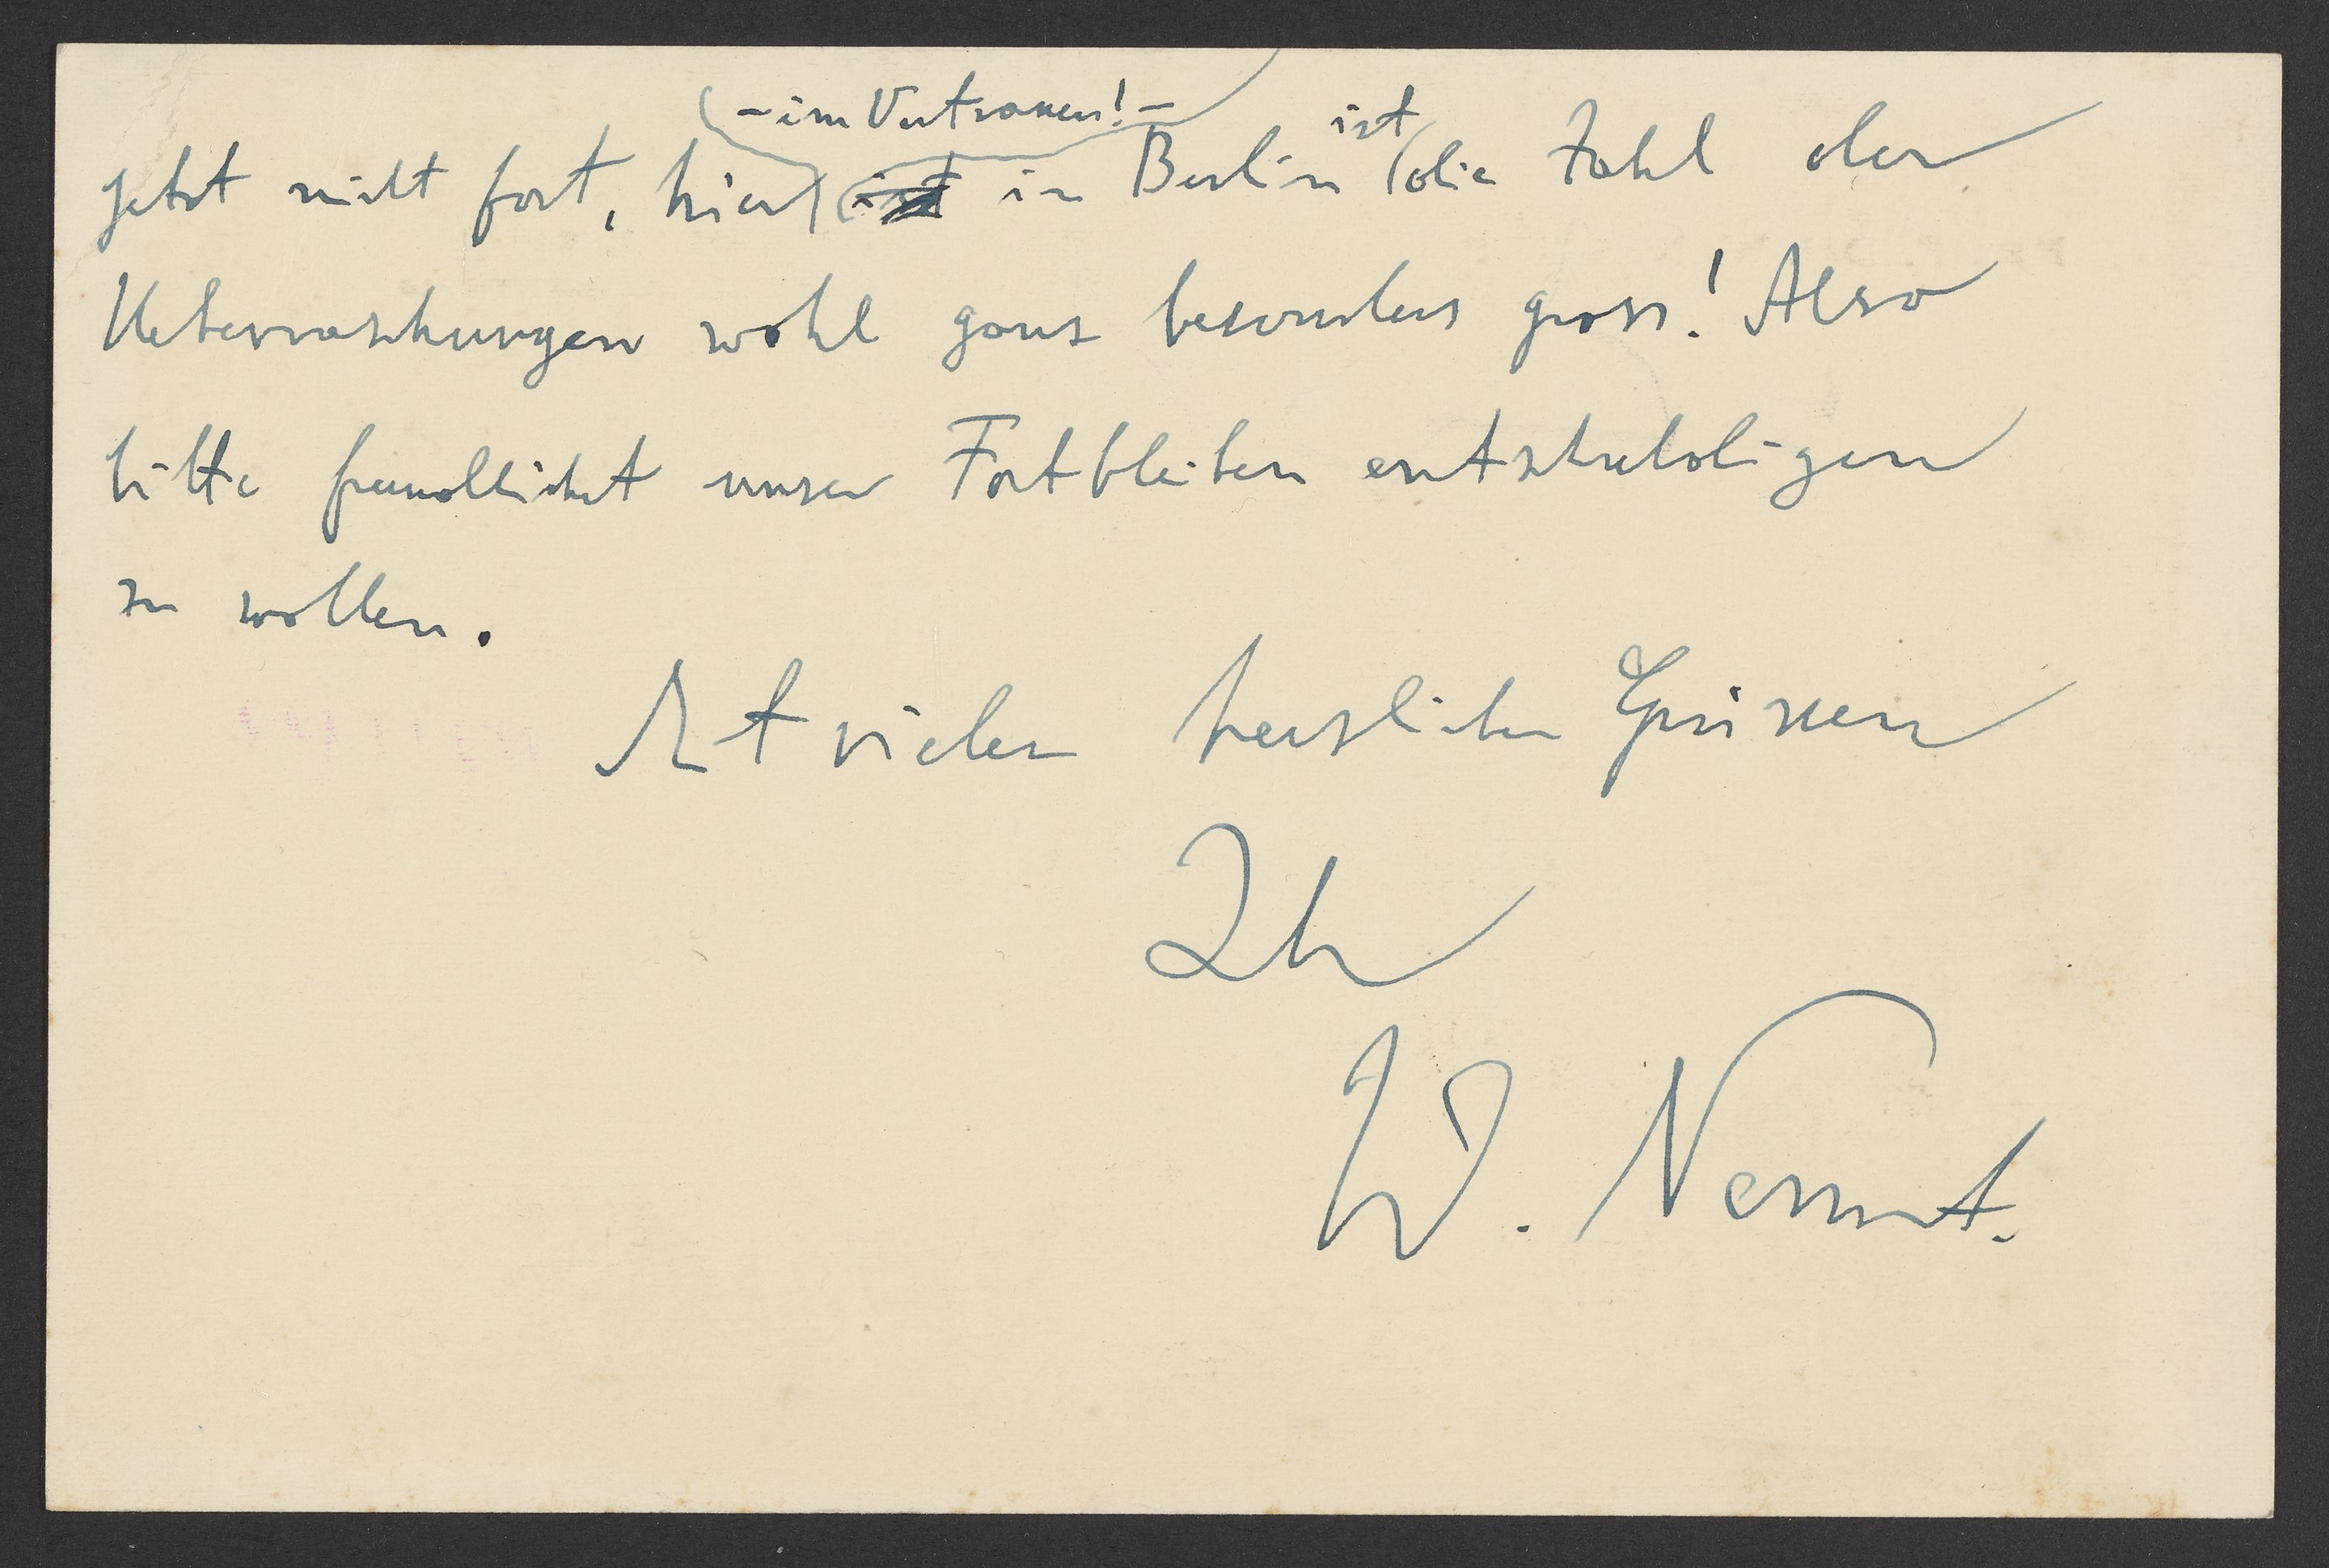 - im Vertrauen! -
jetzt nicht fort, hier in Berlin ist die Zahl der
Ueberraschungen wohl ganz besonders gross! Also
bitte freundlichst unser Fortbleiben entschuldigen
zu wollen.
Mit vielen herzlichen Grüssen
Ihr
W. Nernst.